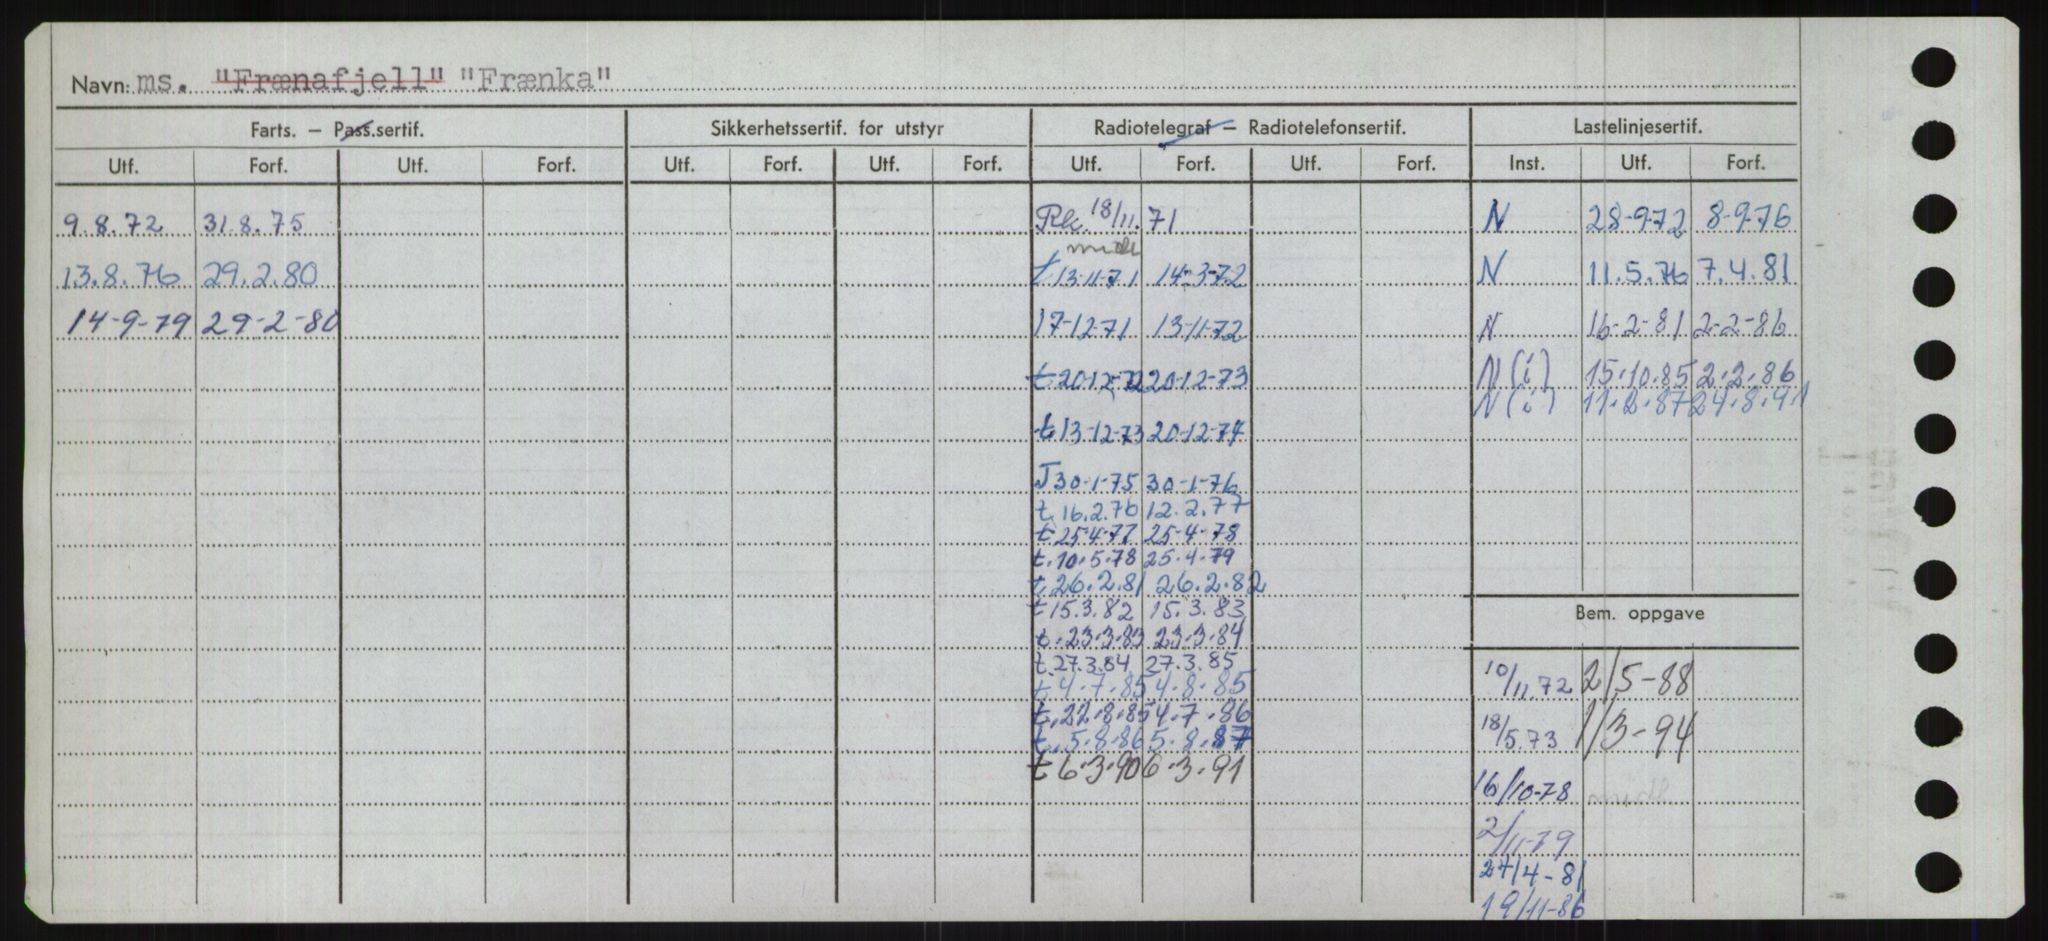 Navn: ms. "Frænafjell" "Frænka"
Farts. – Pass.sertif. Sikkerhetssertif. for utstyr Radiotelegraf – Radiotelefonsertif. Lastelinjesertif.
Utf. Forf. Utf. Forf. Utf. Forf. Utf. Forf. Utf. Forf. Utf. Forf. Inst. Utf. Forf.
9.8.72 31.8.75 18/11.71 N 28-9-72 8-9-76
midl
13.8.76 29.2.80 t 13-11-71 14-3-72 N 11.5.76 7.4.81
14-9-79 29-2-80 17-12-71 13-11-72 N 16-2-81 2-2-86
t 20-12-72 20-12-73 N (i) 15.10.85 2.2.86
N (i) 11.2.87 24.8.91
t 13-12-73 20-12-74
T 30-1-75 30-1-76
t. 16.2.76 12.2.77
t 25-4-77 25-4-78
t. 10.5.78 25.4.79
t 26.2.81 26.2.82
t 15.3.82 15.3.83
Bem. oppgave
t. 23.3.83 23.3.84
t. 27.3.84 27.3.85
10/11.72 2/5-88
t 4.7.85 4.8.85
t. 22.8.85 4.7.86
18/5.73 1/3-94
t. 5.8.86 5.8.87
t 6.3.90 6.3.91
16/10-78 midl.
2/11-79
27/4-81
19/11-86